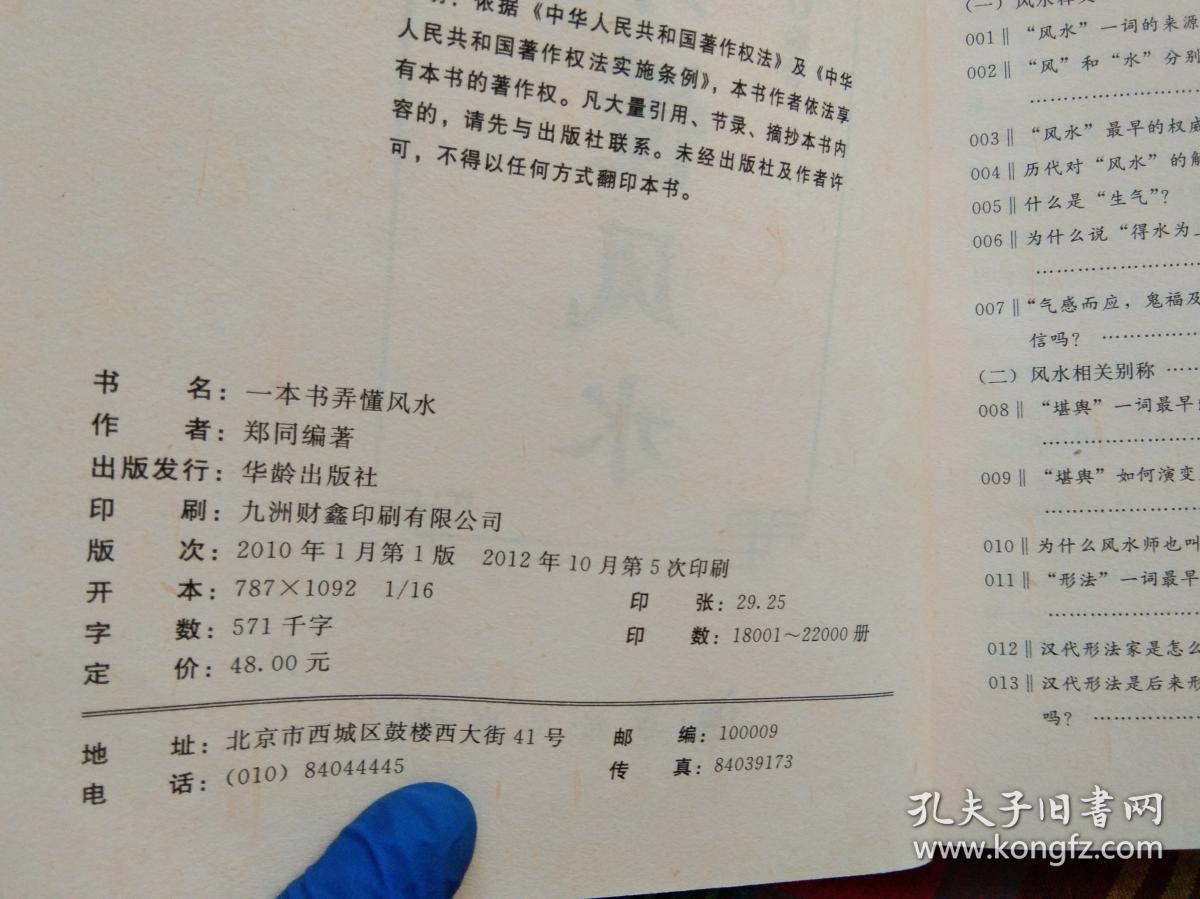 依据《中华人民共和国著作权法》及《中华
人民共和国著作权法实施条例》，本书作者依法享
有本书的著作权。凡大量引用、节录、摘抄本书内
容的，请先与出版社联系。未经出版社及作者许
可，不得以任何方式翻印本书。
书 名：一本书弄懂风水
作 者：郑同编著
出版发行：华龄出版社
印 刷：九洲财鑫印刷有限公司
版 次：2010年1月第1版 2012年10月第5次印刷
开 本：787×1092 1/16 印 张：29.25
字 数：571千字 印 数：18001～22000册
定 价：48.00元
地 址：北京市西城区鼓楼西大街41号 邮 编：100009
电 话：(010) 84044445 传 真：84039173
(一) 风水释义
001‖“风水”一词的来源
002‖“风”和“水”分别
003‖“风水”最早的权威
004‖历代对“风水”的解
005‖什么是“生气”？
006‖为什么说“得水为上
007‖“气感而应，鬼福及
信吗？ ………………
(二) 风水相关别称 ……
008‖“堪舆”一词最早
009‖“堪舆”如何演变
010‖为什么风水师也叫
011‖“形法”一词最早
012‖汉代形法家是怎么
013‖汉代形法是后来形
吗？ ………………
风
水
孔夫子旧书网
www.kongfz.com